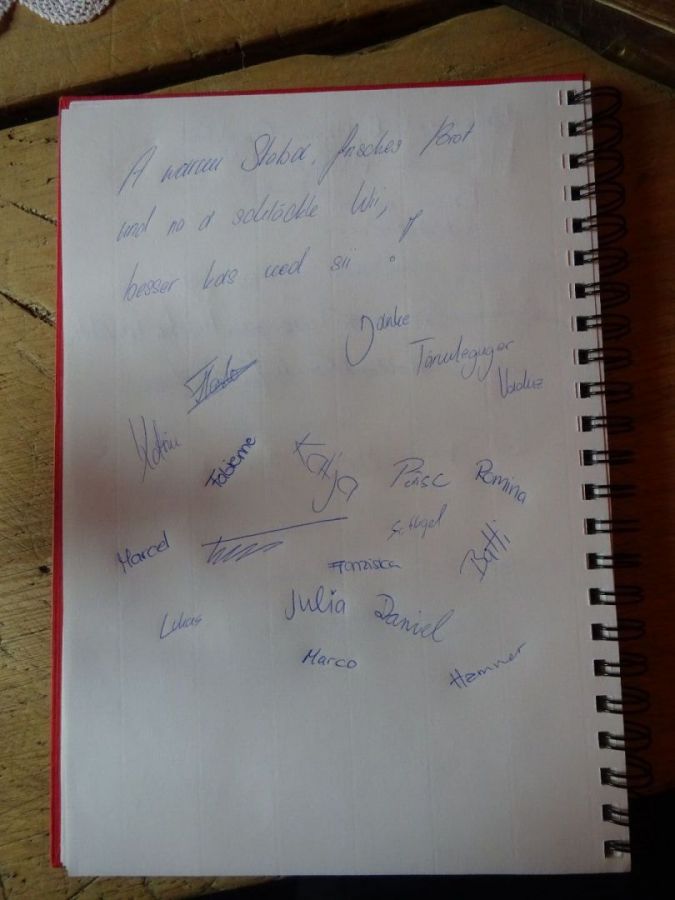 A warmi Stoba, frisches Brot
und no a schlöckle Wii,
besser kas ned sii !
Danke
Törmleguger
Vaduz
Katrin
Fabienne
Katja
Romina
Marcel
Franziska
Batti
Lukas
Julia Daniel
Marco
Hammer